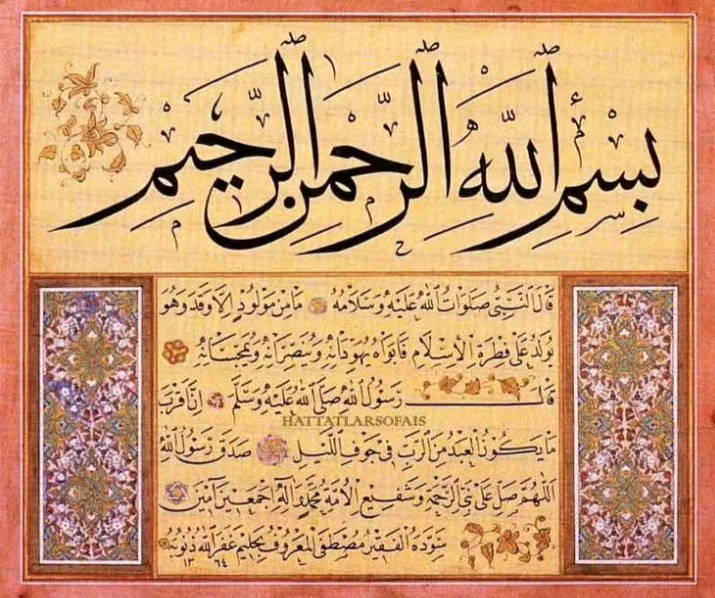 بِسْمِ اللّٰهِ الرَّحْمٰنِ الرَّحِيمِ
قَالَ النَّبِيُّ صَلَوَاتُ اللّٰهِ عَلَيْهِ وَسَلَامُهُ مَا مِنْ مَوْلُودٍ اِلَّا وَقَدْ وَهُوَ
يُولَدُ عَلٰى فِطْرَةِ الْاِسْلَامِ فَاَبَوَاهُ يُهَوِّدَانِهِ وَيُنَصِّرَانِهِ وَيُمَجِّسَانِهِ
قَالَ رَسُولُ اللّٰهِ صَلَّى اللّٰهُ عَلَيْهِ وَسَلَّمَ اِنَّ اَقْرَبَ
HATTATLARSOFAIS
مَا يَكُونُ الْعَبْدُ مِنَ الرَّبِّ فِي جَوْفِ اللَّيْلِ صَدَقَ رَسُولُ اللّٰهِ
اَللّٰهُمَّ صَلِّ عَلٰى نَبِيِّ الرَّحْمَةِ وَشَفِيعِ الْاُمَّةِ مُحَمَّدٍ وَاٰلِهِ اَجْمَعِينَ اٰمِينَ
سَوَّدَهُ الْفَقِيرُ مُصْطَفَى الْمَعْرُوفُ بِحَلِيمٍ غَفَرَ اللّٰهُ ذُنُوبَهُ
١٣٦٤